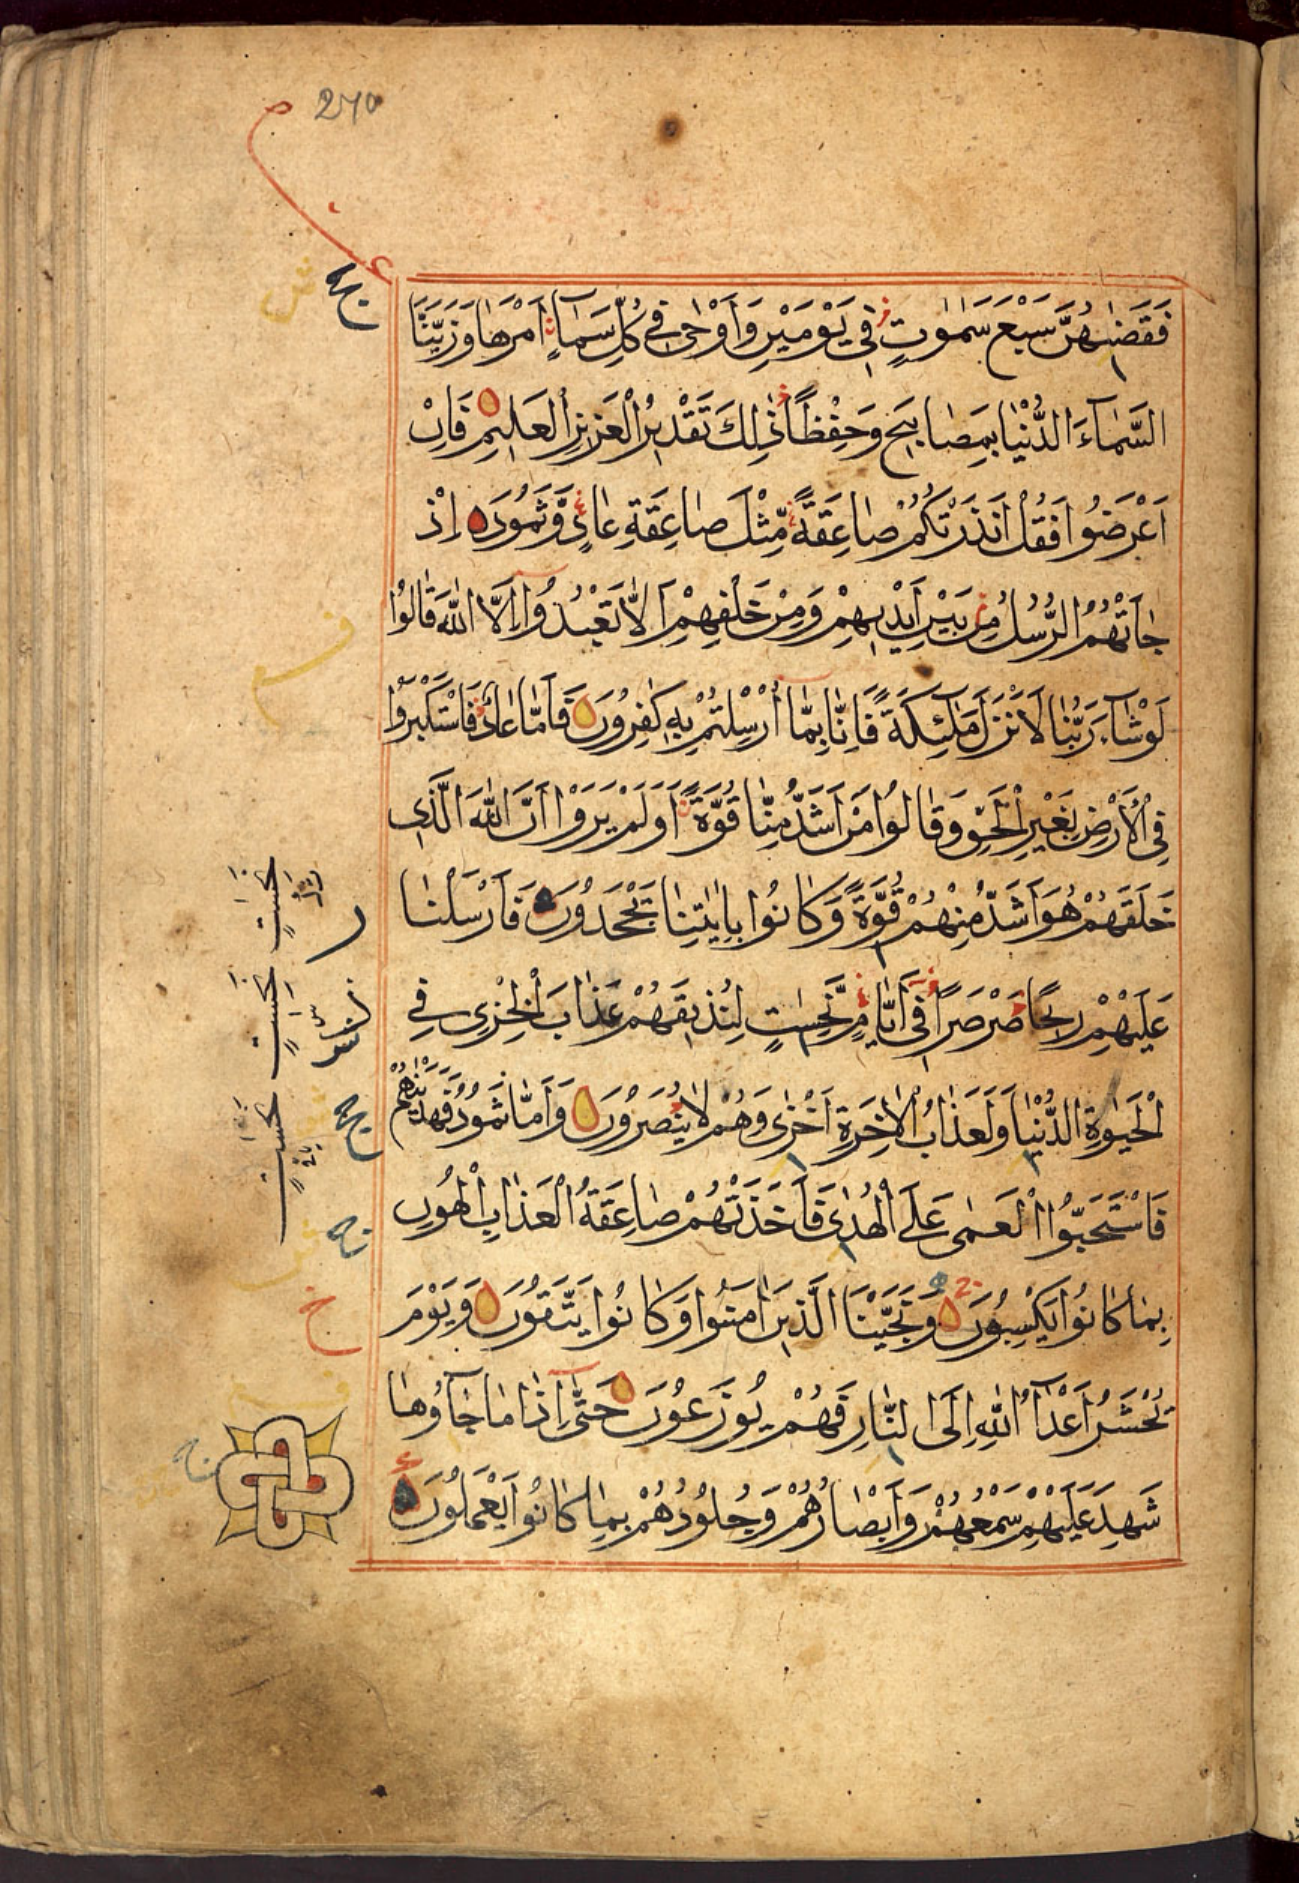 270
فَقَضٰىهُنَّ سَبْعَ سَمٰوٰتٍ فِي يَوْمَيْنِ وَاَوْحٰى فِي كُلِّ سَمَاءٍ اَمْرَهَا وَزَيَّنَّا
السَّمَآءَ الدُّنْيَا بِمَصَابِيحَ وَحِفْظًا ذٰلِكَ تَقْدِيرُ الْعَزِيزِ الْعَلِيمِ فَاِنْ
اَعْرَضُوا فَقُلْ اَنْذَرْتُكُمْ صَاعِقَةً مِّثْلَ صَاعِقَةِ عَادٍ وَّثَمُودَ اِذْ
جَاَتْهُمُ الرُّسُلُ مِنْ بَيْنِ اَيْدِيهِمْ وَمِنْ خَلْفِهِمْ اَلَّا تَعْبُدُوا اِلَّا اللّٰهَ قَالُوا
لَوْ شَآءَ رَبُّنَا لَاَنْزَلَ مَلٰٓئِكَةً فَاِنَّا بِمَا اُرْسِلْتُمْ بِهٖ كٰفِرُونَ فَاَمَّا عَادٌ فَاسْتَكْبَرُوا
فِي الْاَرْضِ بِغَيْرِ الْحَقِّ وَقَالُوا مَنْ اَشَدُّ مِنَّا قُوَّةً اَوَلَمْ يَرَوْا اَنَّ اللّٰهَ الَّذِي
خَلَقَهُمْ هُوَ اَشَدُّ مِنْهُمْ قُوَّةً وَكَانُوا بِاٰيٰتِنَا يَجْحَدُونَ فَاَرْسَلْنَا
عَلَيْهِمْ رِيحًا صَرْصَرًا فِي اَيَّامٍ نَّحِسٰتٍ لِنُذِيقَهُمْ عَذَابَ الْخِزْيِ فِي
الْحَيٰوةِ الدُّنْيَا وَلَعَذَابُ الْاٰخِرَةِ اَخْزٰى وَهُمْ لَا يُنْصَرُونَ وَاَمَّا ثَمُودُ فَهَدَيْنٰهُمْ
فَاسْتَحَبُّوا الْعَمٰى عَلَى الْهُدٰى فَاَخَذَتْهُمْ صَاعِقَةُ الْعَذَابِ الْهُونِ
بِمَا كَانُوا يَكْسِبُونَ وَنَجَّيْنَا الَّذِينَ اٰمَنُوا وَكَانُوا يَتَّقُونَ وَيَوْمَ
نَحْشُرُ اَعْدَآءَ اللّٰهِ اِلَى النَّارِ فَهُمْ يُوزَعُونَ حَتّٰى اِذَا مَا جَآؤُهَا
شَهِدَ عَلَيْهِمْ سَمْعُهُمْ وَاَبْصَارُهُمْ وَجُلُودُهُمْ بِمَا كَانُوا يَعْمَلُونَ